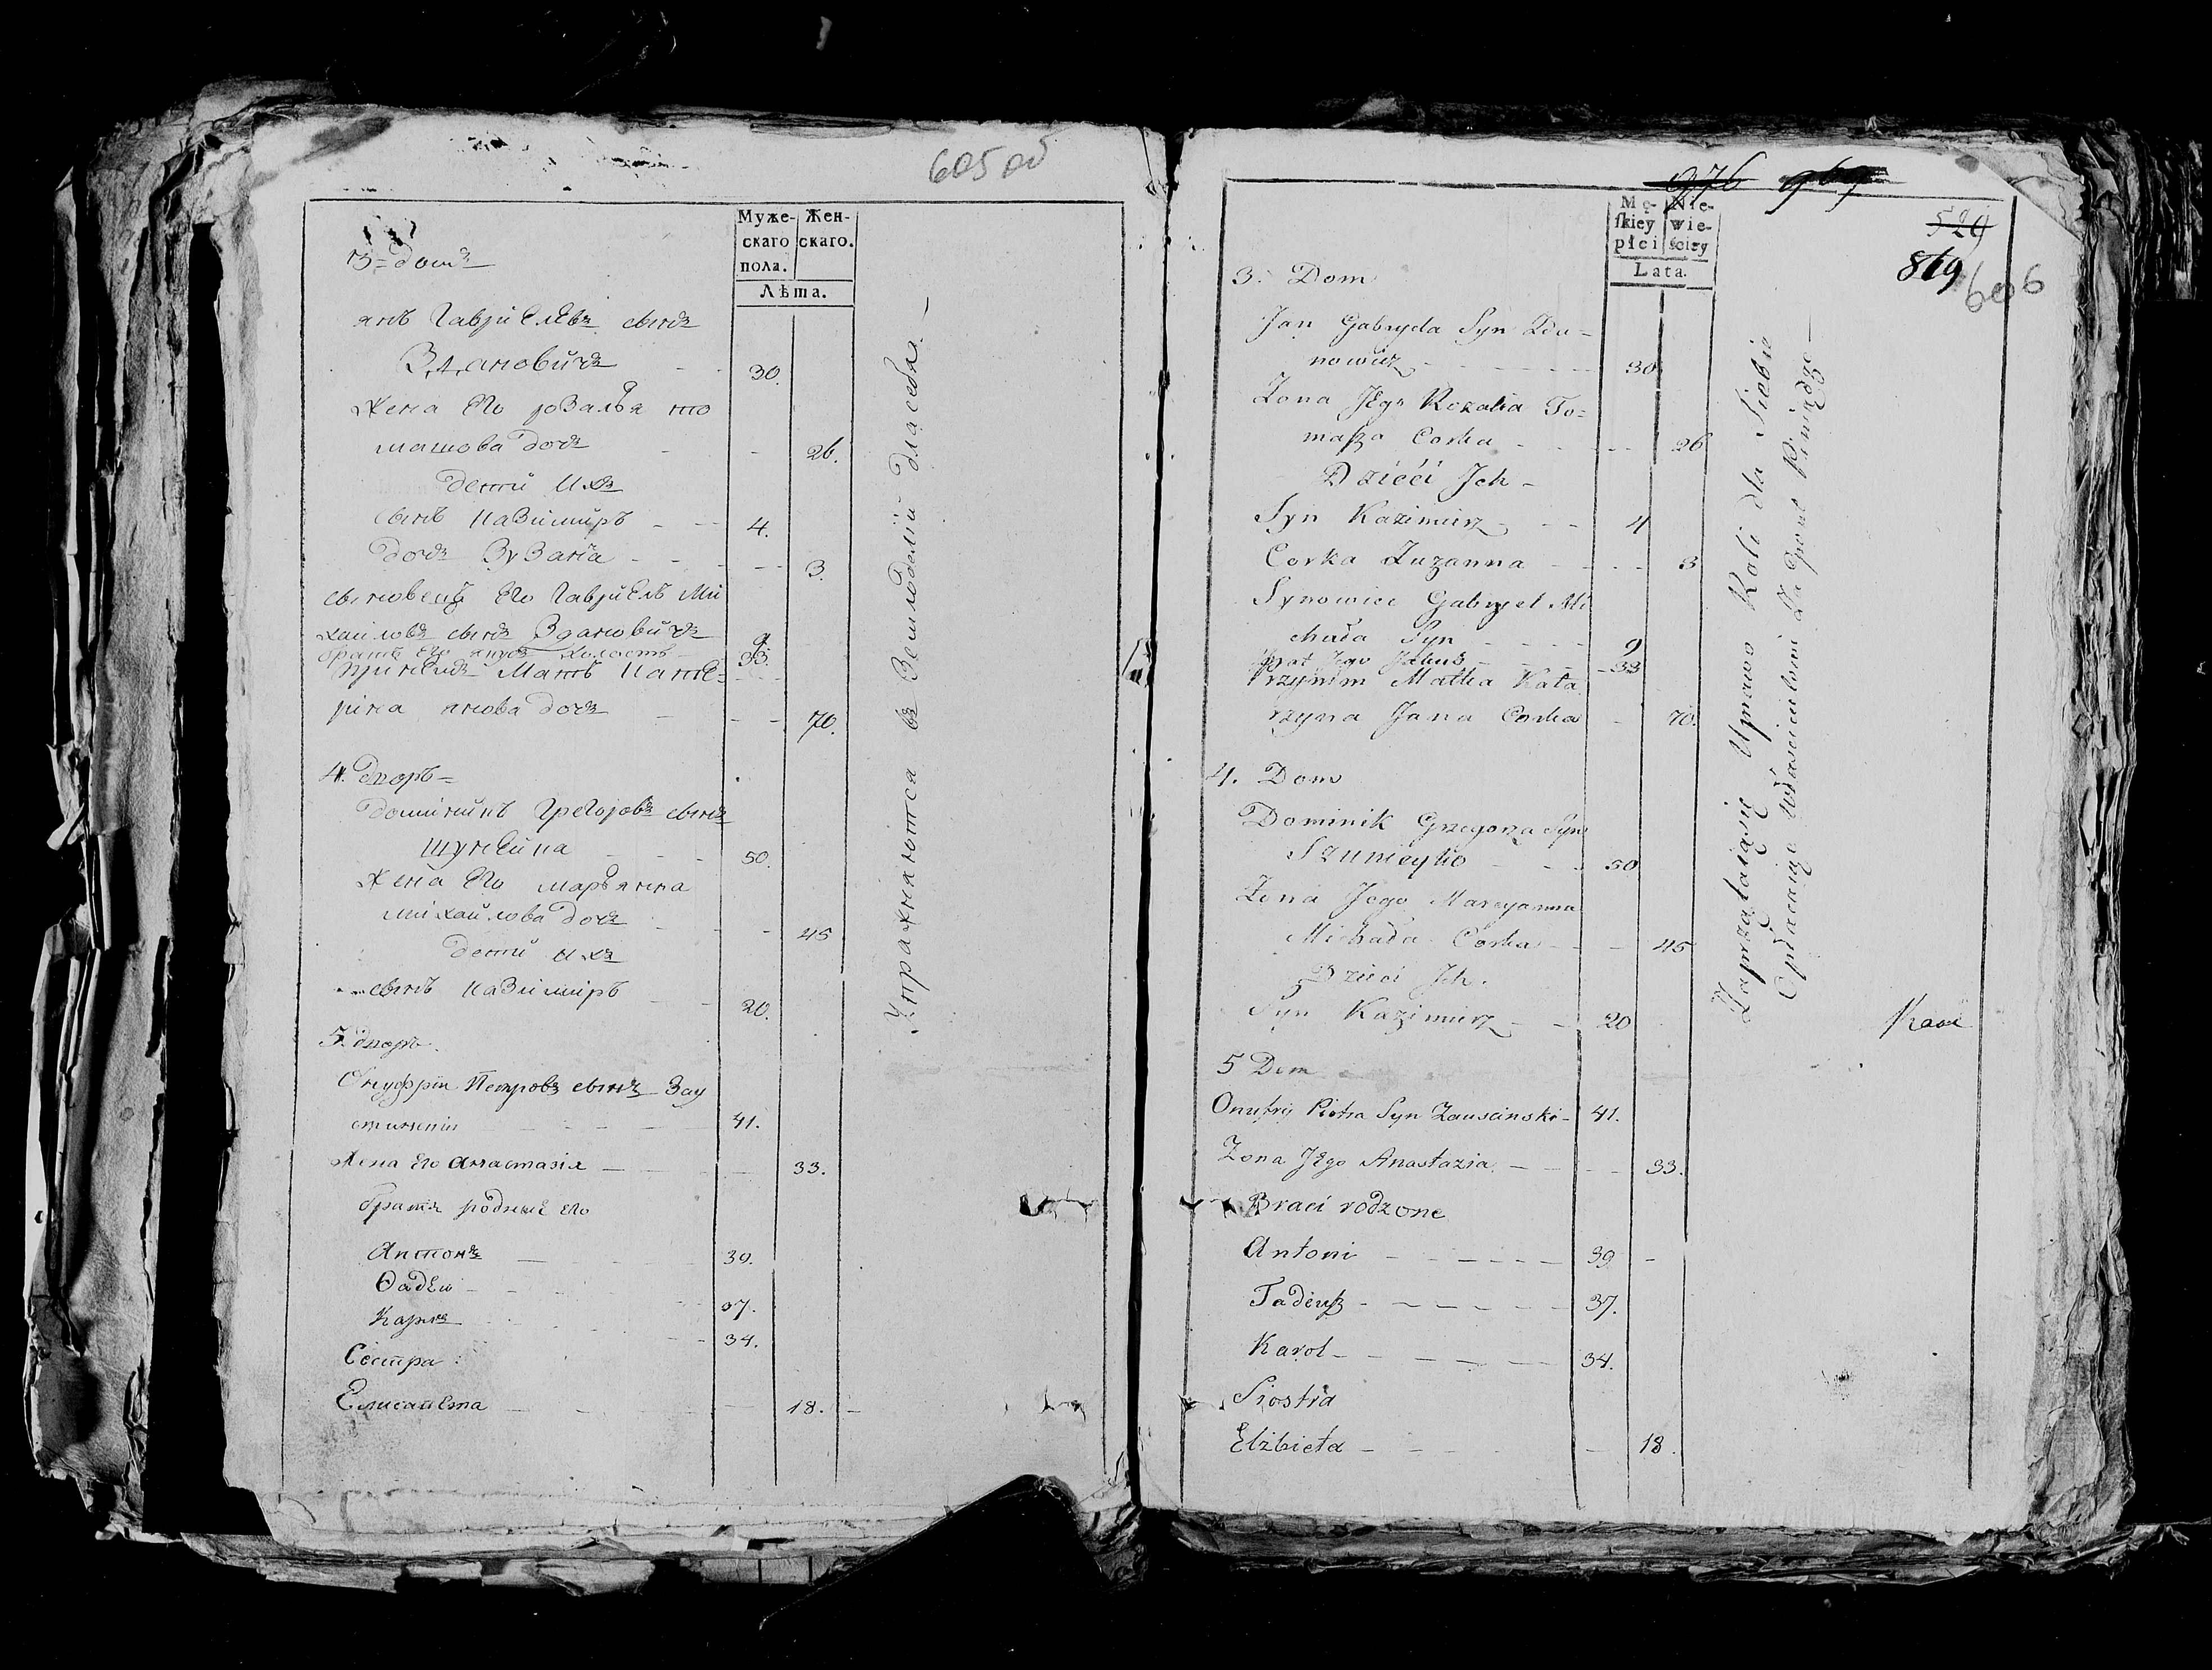 605 об
Муже- Жен-
скаго скаго.
пола.
Лѣта.
3 = Домъ
янъ Гавріелевъ сынъ
Здановичъ 30.
Жена Его розалья то
машова дочъ 26.
дети ихъ
сынъ казимиръ 4.
дочъ Зузана 3.
сыновецъ Его Гавріелъ Ми
хайловъ сынъ Здановичъ 9
братъ Его якубъ холостъ 33.
при немъ Матъ Кате-
рина янова дочъ 70.
4. дворъ =
доминикъ Грегоровъ сынъ
шунейка 50.
Жена Его марьянна
михайлова дочъ 45
дети ихъ
сынъ казимиръ 20.
5. дворъ
Онуфрій Петровъ сынъ Зау
стинскій 41.
Жена Его Анастазія 33.
братя родные Его
Антонъ 39.
Ѳадей 37.
Карлъ 34.
Сестра
Елисавета 18.
Упражняются въ Земледелии для себя.
976 969
529
869
606
Mę- Nie-
ſkiey wie-
płci ściey
Lata.
3. Dom
Jan Gabryela Syn Zda-
nowicz 30
Zona Jego Rozalia To=
maſza Corka 26
Dzieci Jch
Syn Kazimierz 4
Corka Zuzanna 3
Synowiec Gabryel Mi
chała Syn 9
Brat Jego Jakub 33
Przynim Matka Kata
rzyna Jana Corka 70.
4. Dom
Dominik Grzegorza Syn
Szuneyko 50
Zona Jego Maryanna
Michała Corka 45
Dzieci Jch.
Syn Kazimierz 20
5 Dom
Onufry Piotra Syn Zauscinski 41.
Zona Jego Anastazia 33.
Braci rodzone
Antoni 39
Tadeuſz 37.
Karol 34.
Siostra
Elżbieta 18.
Zaprzątaiąsię Uprawo Roli dla Siebie
Opłacaiąc właścicielowi Za Grunt Pieniądze